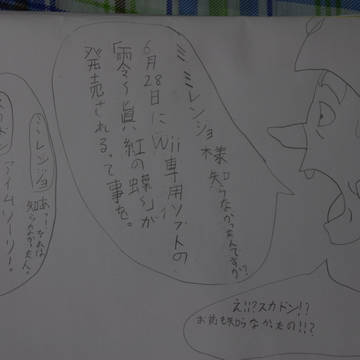 ミミレンショ様知らなかったんですか?
6月28日にWii専用ソフトの
「零〜眞紅の蝶〜」が
発売されるって事を。
え!!?スカドン!?
お前も知らなかったの!!?
ミレンショ
アイムソーリー。